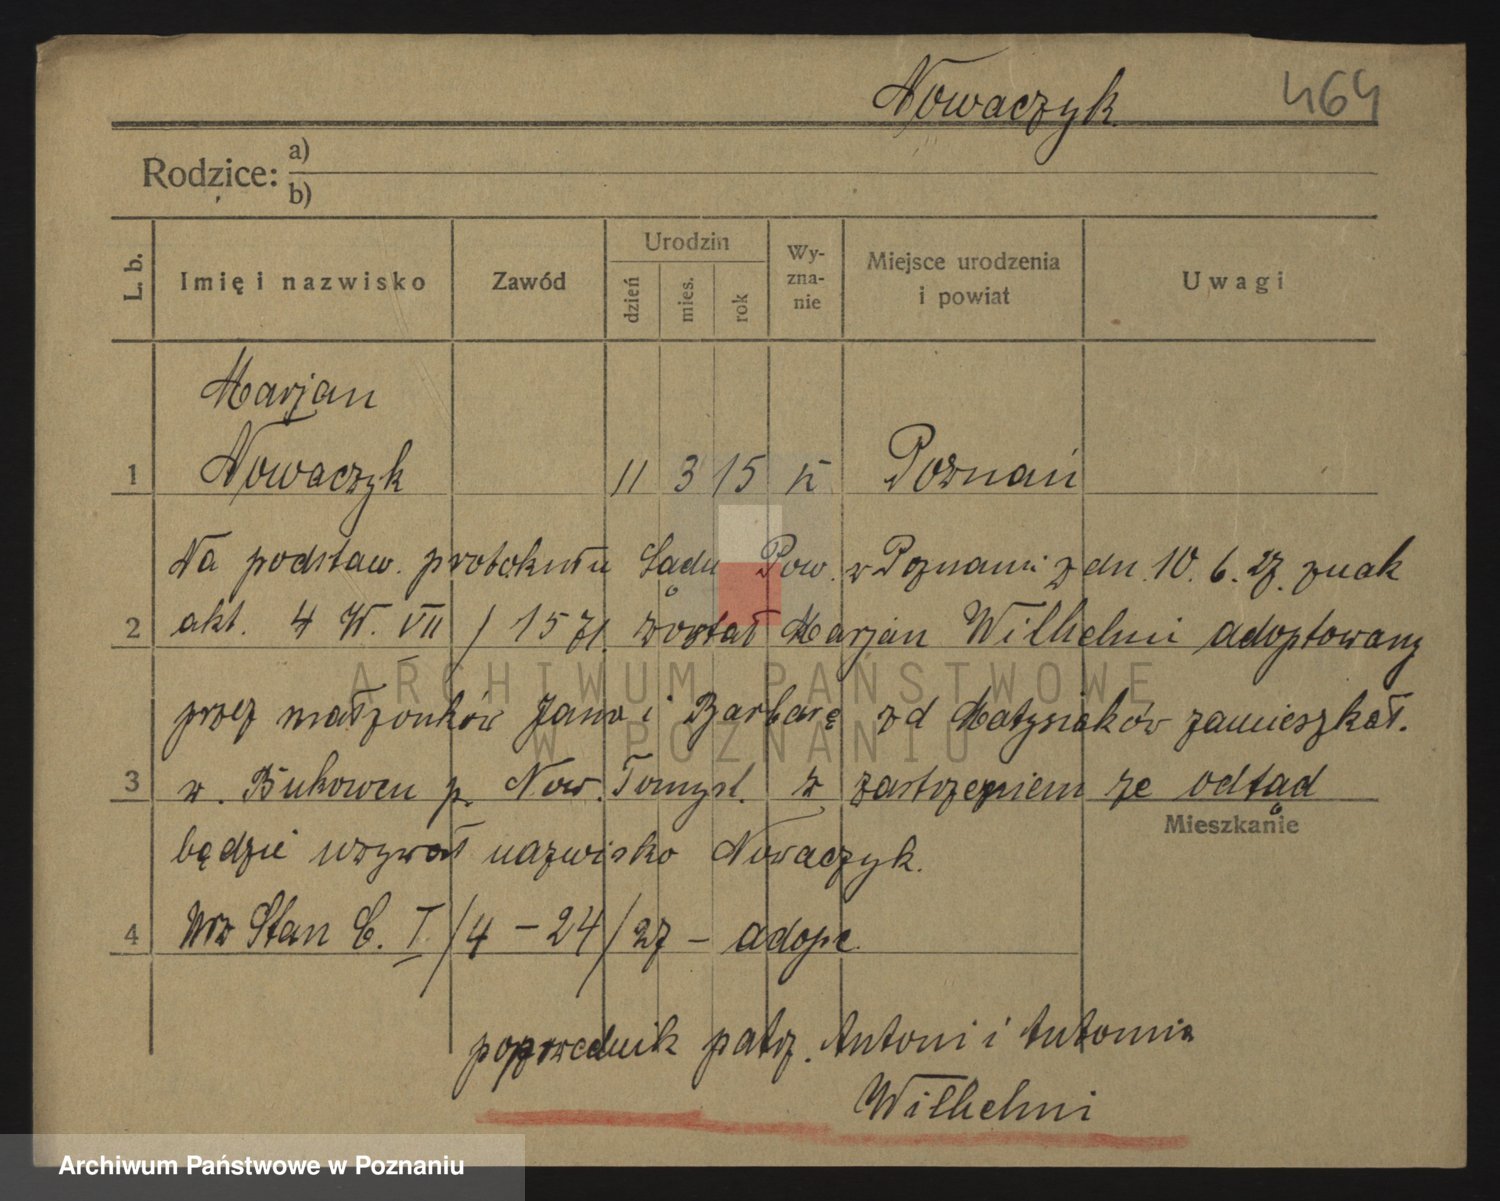 Nowaczyk
464
Rodzice: a)
b)
L. b.
Imię i nazwisko
Zawód
Urodzin
dzień
mies.
rok
Wy-
zna-
nie
Miejsce urodzenia
i powiat
Uwagi
Marjan
1 Nowaczyk 11 3 15 k Poznań
Na podstaw. protokułu Sądu Pow. w Poznaniu z dn. 10. 6. 27. znak
2 akt. 4 W. VII / 1571. został Marjan Wilhelmi adoptowany
przez małżonków Jana i Barbarę zd Matysiaków zamieszkał.
3 w. Bukowcu p. Now. Tomysl. z zastrzeżeniem że odtąd
Mieszkanie
będzie używał nazwisko Nowaczyk.
4 Urz Stan C. I / 4 – 24 / 27 – adopc
poprzednik patrz. Antoni i Antonina
Wilhelmi
ARCHIWUM PAŃSTWOWE
W POZNANIU
Archiwum Państwowe w Poznaniu